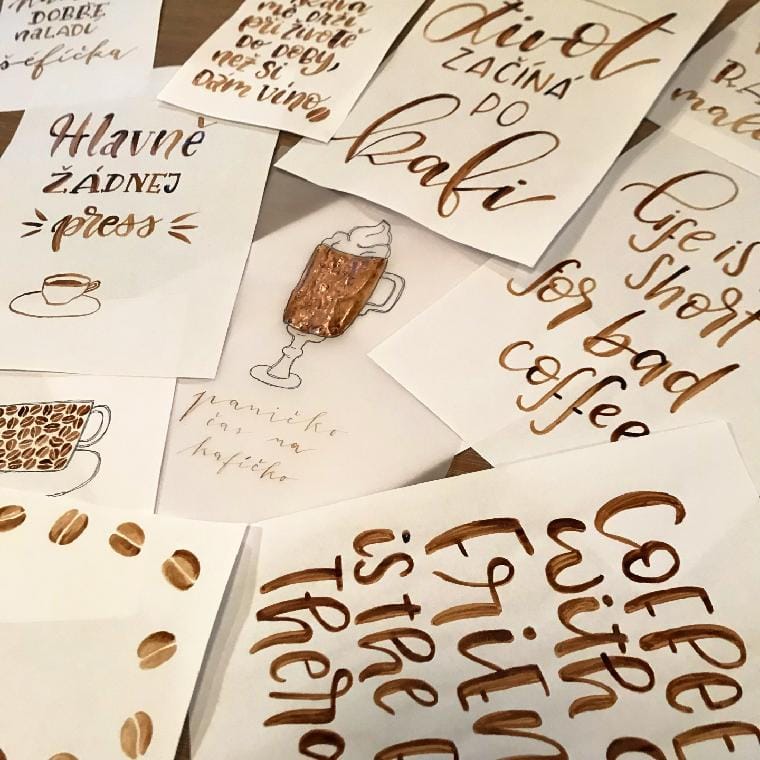 DOBŘE
naladí
šéfíčka
mě drží
při životě
DO DOBY,
než si
Dám víno
život
ZAČÍNÁ
PO
kafi
Hlavně
ŽÁDNEJ
press
life is
short
for bad
coffee
paničko
čas na
kafíčko
COFFEE
with
is the